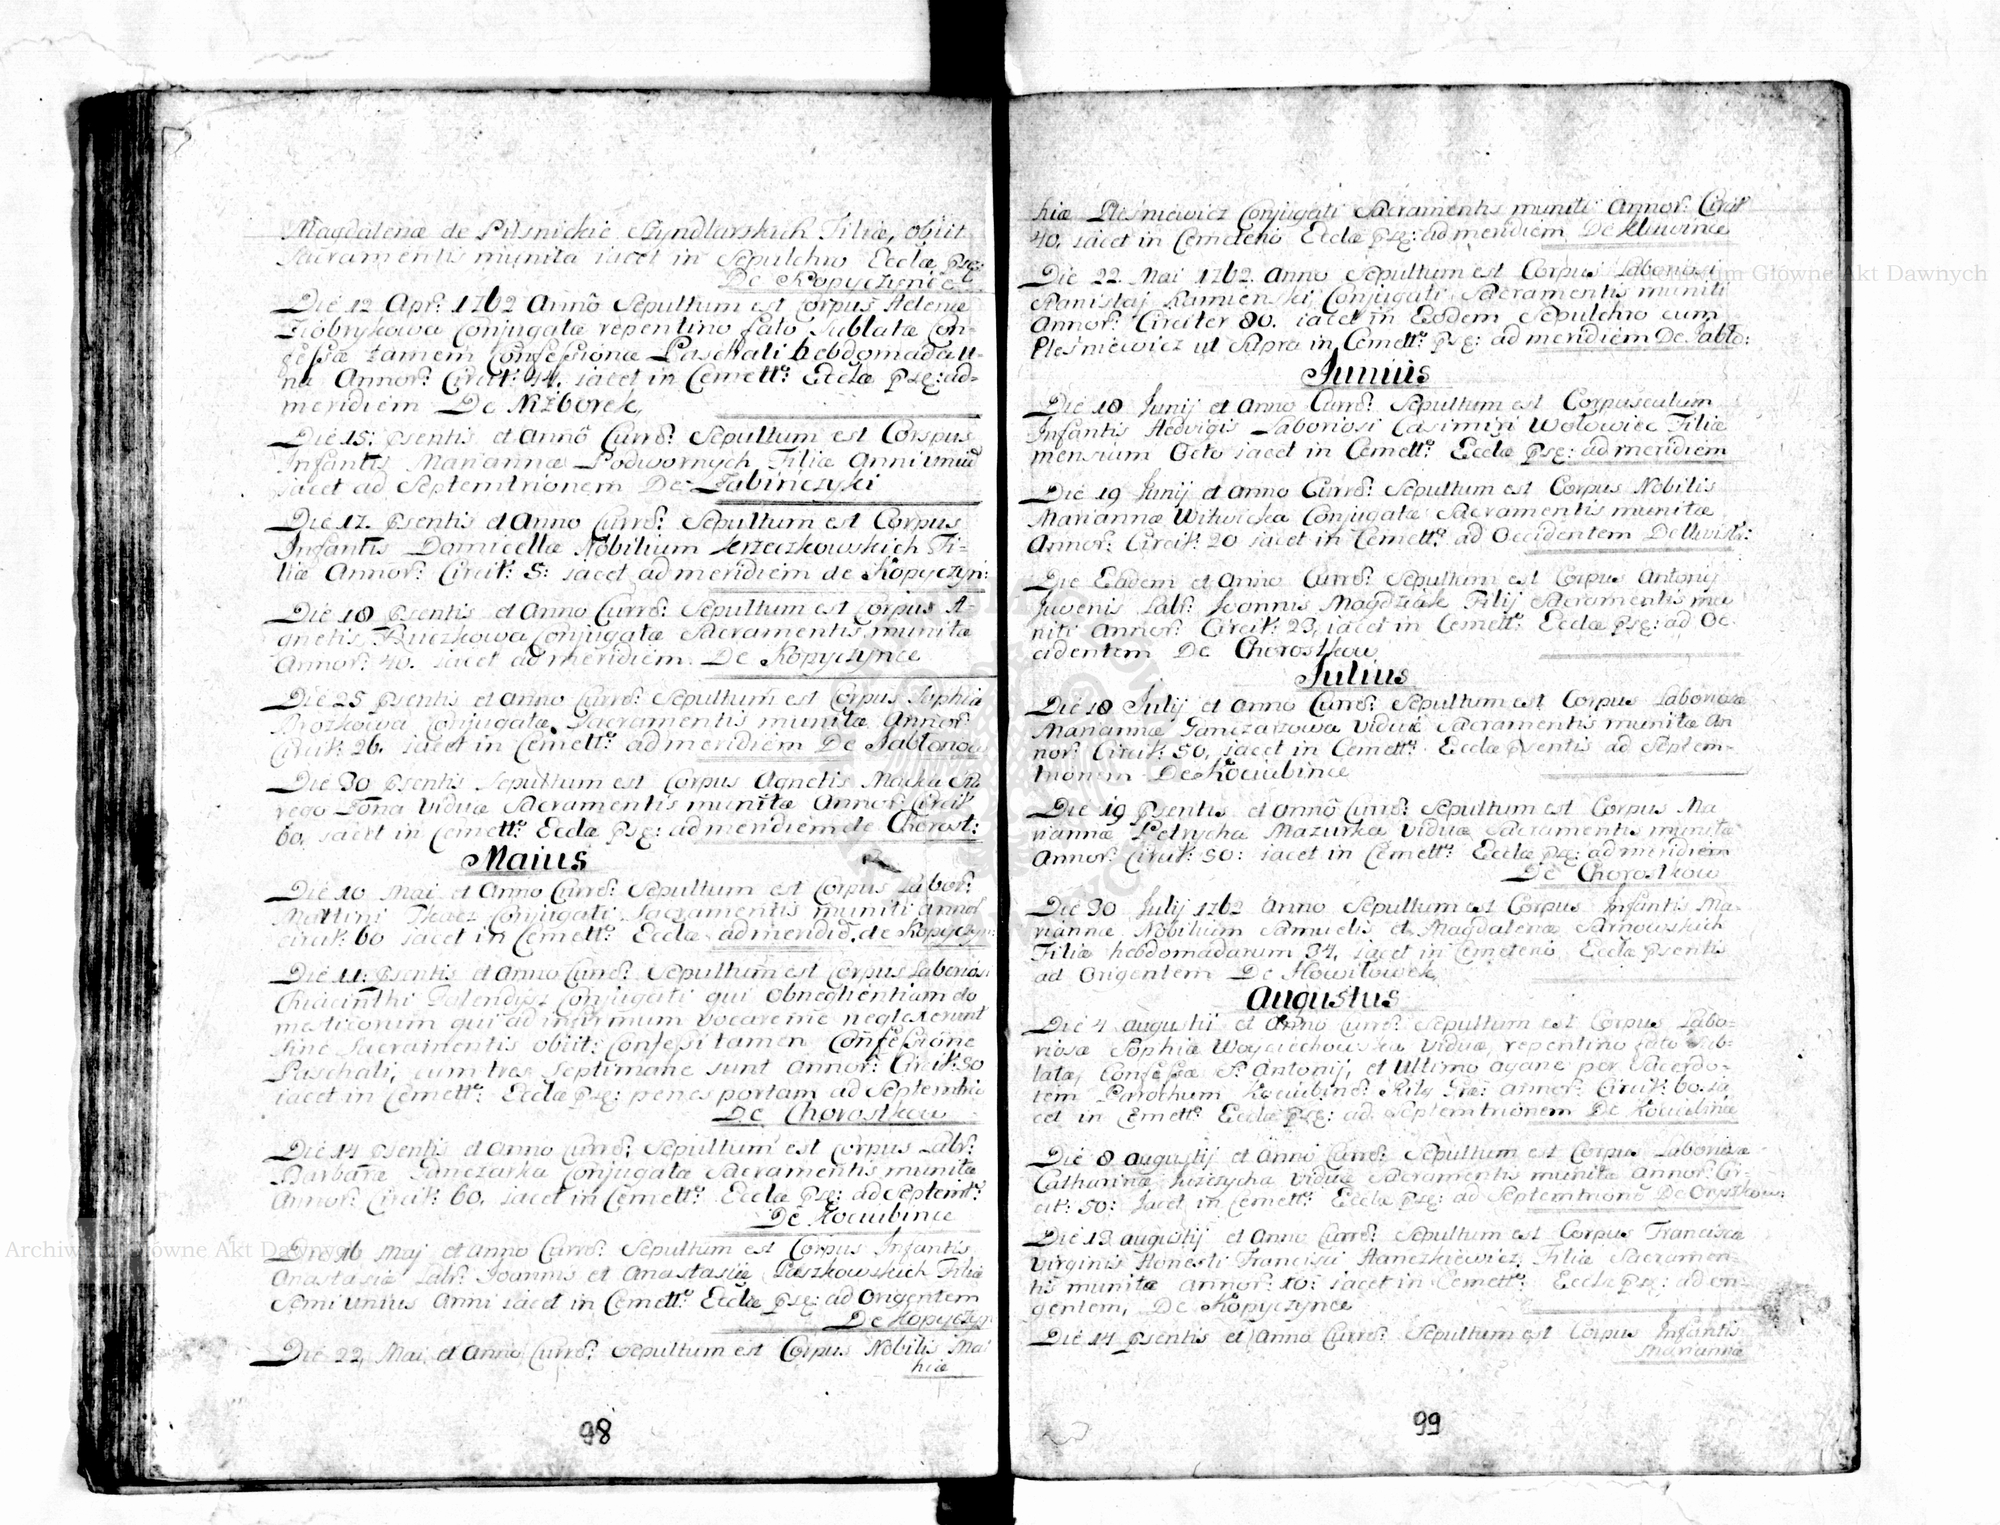 Magdalenæ de Pilsnickie Szyndlarskich Filiæ, obiit
Sacramentis munita iacet in Sepulchro Eccłæ pse:
De Kopyczyńce
Die 12 Apr: 1762 Annô Sepultum est Corpus Helenæ
conjugatæ repentino fato Sublatæ Con-
feſsæ tamem Confeſsionæ Paschali hebdomada u-
na Annor: Circit: 44. iacet in Cemett: Eccłæ pse: ad-
meridiem De Niżborek,
Die 15: psentis et Annô Curr: Sepultum est Corspus
Infantis Mariannæ Podwornych Filiæ Anni unius
iacet ad Septemtrionem De Łabinczyki
Die 17. psentis et Anno Curr: Sepultum est Corpus
Infantis Domicellæ Nobilium Krzeczkowskich Fi-
liæ Annor: Circit: 5: iacet ad meridiem de Kopyczyń:
Die 18 psentis et Anno Curr: Sepultum est Corpus A-
gnetis Ruczkowa Conjugatæ Sacramentis munitæ
Annor: 40. iacet ad meridiem. De Kopyczynce
Die 25 psentis et Anno Curr: Sepultum est Corpus Sophiæ
conjugatæ Sacramentis munitæ Annor:
Circit: 26. iacet in Cemett: ad meridiem De Jabłonow
Die 30 psentis Sepultum est Corpus Agnetis
Zona Viduæ Sacramentis munitæ Annor: Circit:
60. iacet in Cemett: Eccłæ Pse: ad meridiem de Chorost:
Maius
Die 10 Mai et Anno Curr: Sepultum est Corpus Labor:
Martini Tkacz Conjugati Sacramentis muniti Annor
Circit: 60 iacet in Cemett: Eccłæ ad merid. de Kopyczyn:
Die 11: psentis et Anno Curr: Sepultum est Corpus Laborios:
Chiacinthi Conjugati qui ob neglientiam do
mesticorum qui ad infirmum vocare me neglexerunt
Sine Sacramentis obiit: Confeſsi tamen Confeſsione
Paschali, cum tres Septimane sunt Annor: Circit: 80
iacet in Cemett: Eccłæ pse: penes portam ad Septemtrio
De Chorostkow
Die 14 psentis et Anno Curr: Sepultum est Corpus Labr:
Barbaræ Ganczarka Conjugatæ Sacramentis munitæ
Annor: Circit: 60. iacet in Cemett: Eccłæ Pse: ad Septemt:
De Kociubince
Die 16 Maj et Anno Curr: Sepultum est Corpus Infantis
Anastasiæ Labr: Joannis et Anastasiæ Paszkowskich Filiæ
Semi unius Anni iacet in Cemett: Eccłæ pse: ad Origentem
De Kopyczyn
Die 22. Mai et Anno Curr: Sepultum est Corpus Nobilis Ma
hiæ
98
hiæ Pleśniewicz Conjugati Sacramentis muniti Annor: Circit
40. iacet in Cemeterio Eccłæ pse: ad meridiem
Die 22. Mai 1762. Anno Sepultum est Corpus Laboriosi
Stanislaj Kamienski Conjugati Sacramentis muniti
Annor: Circiter 80. iacet in Eodem Sepulchro cum
Pleśniewicz ut Supra in Cemett: pse: ad meridiem De Jabło:
Junius
Die 18 Junij et Anno Curr: Sepultum est Corpusculum
Infantis Hedvigis Laboriosi Casimiri Wołowiec Filiæ
mensium Octo iacet in Cemett: Eccłæ pse: ad meridiem
Die 19 Junij et Anno Curr: Sepultum est Corpus Nobilis
Mariannæ Witwicka Conjugatæ Sacramentis munitæ
Annor: Circit: 20 iacet in Cemett: ad Occidentem
Die Eadem et Anno Curr: Sepultum est Corpus Antonij
Juvenis Labr: Joannis Magdziak Filij Sacramentis mu
niti Annor: Circit: 23, iacet in Cemett: Eccłæ pse: ad Oc:
cidentem De Chorostkow
Julius
Die 18 Julij et Anno Curr: Sepultum est Corpus Laboriosæ
Mariannæ Ganczarzowa Viduæ Sacramentis munitæ An
nor: Circit: 50, iacet in Cemett: Eccłæ psentis ad Septem-
trionem De Kociubince
Die 19 psentis et Annô Curr: Sepultum est Corpus Ma
riannæ Petrycha Mazurka Viduæ Sacramentis munitæ
Annor: Circit: 50: iacet in Cemett: Eccłæ pse: ad meridiem
De Chorostkow
Die 30 Julij 1762 Anno Sepultum est Corpus Infantis Ma-
riannæ Nobilium Samuelis et Magdalenæ Sarnowskich
Filiæ hebdomadarum 34, iacet in Cemeterio Eccłæ psentis
ad Origentem De Howiłowek
Augustus
Die 4 augustii et Anno Curr: Sepultum est Corpus Labo-
riosæ Sophiæ Woyciechowska Viduæ, repentino fato Sub-
latæ, Confeſsæ S: Antonij, et Ultimo agone per Sacerdo-
tem Parochum Kociubinc: Annor: Circit: 60. ia-
cet in Cemett: Eccłæ pse: ad Septemtrionem De Kociubince
Die 8 augustij et Anni Curr: Sepultum est Corpus Laboriosæ
Catharinæ Viduæ Sacramentis munitæ Annor: Cir-
cit: 50: iacet in Cemett: Eccłæ pse: ad Septemtrionẽ De Oryszkow:
Die 13 augustij et Anno Curr: Sepultum est Corpus Francisca
Virginis Honesti Francisci Hanczkiewicz, Filiæ Sacramen-
tis munitæ Annor: 10: iacet in Cemett: Eccłæ pse: ad ori-
gentem, De Kopyczynce
Die 14 psentis et Anno Curr: Sepultum est Corpus Infantis
Mariannæ
99
Archiwum Główne Akt Dawnych
Archiwum Główne Akt Dawnych